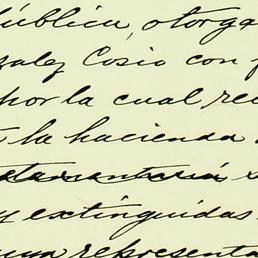 pública, otorga
zalez Cosío con
por la cual re
la hacienda
y extinguidas
representa